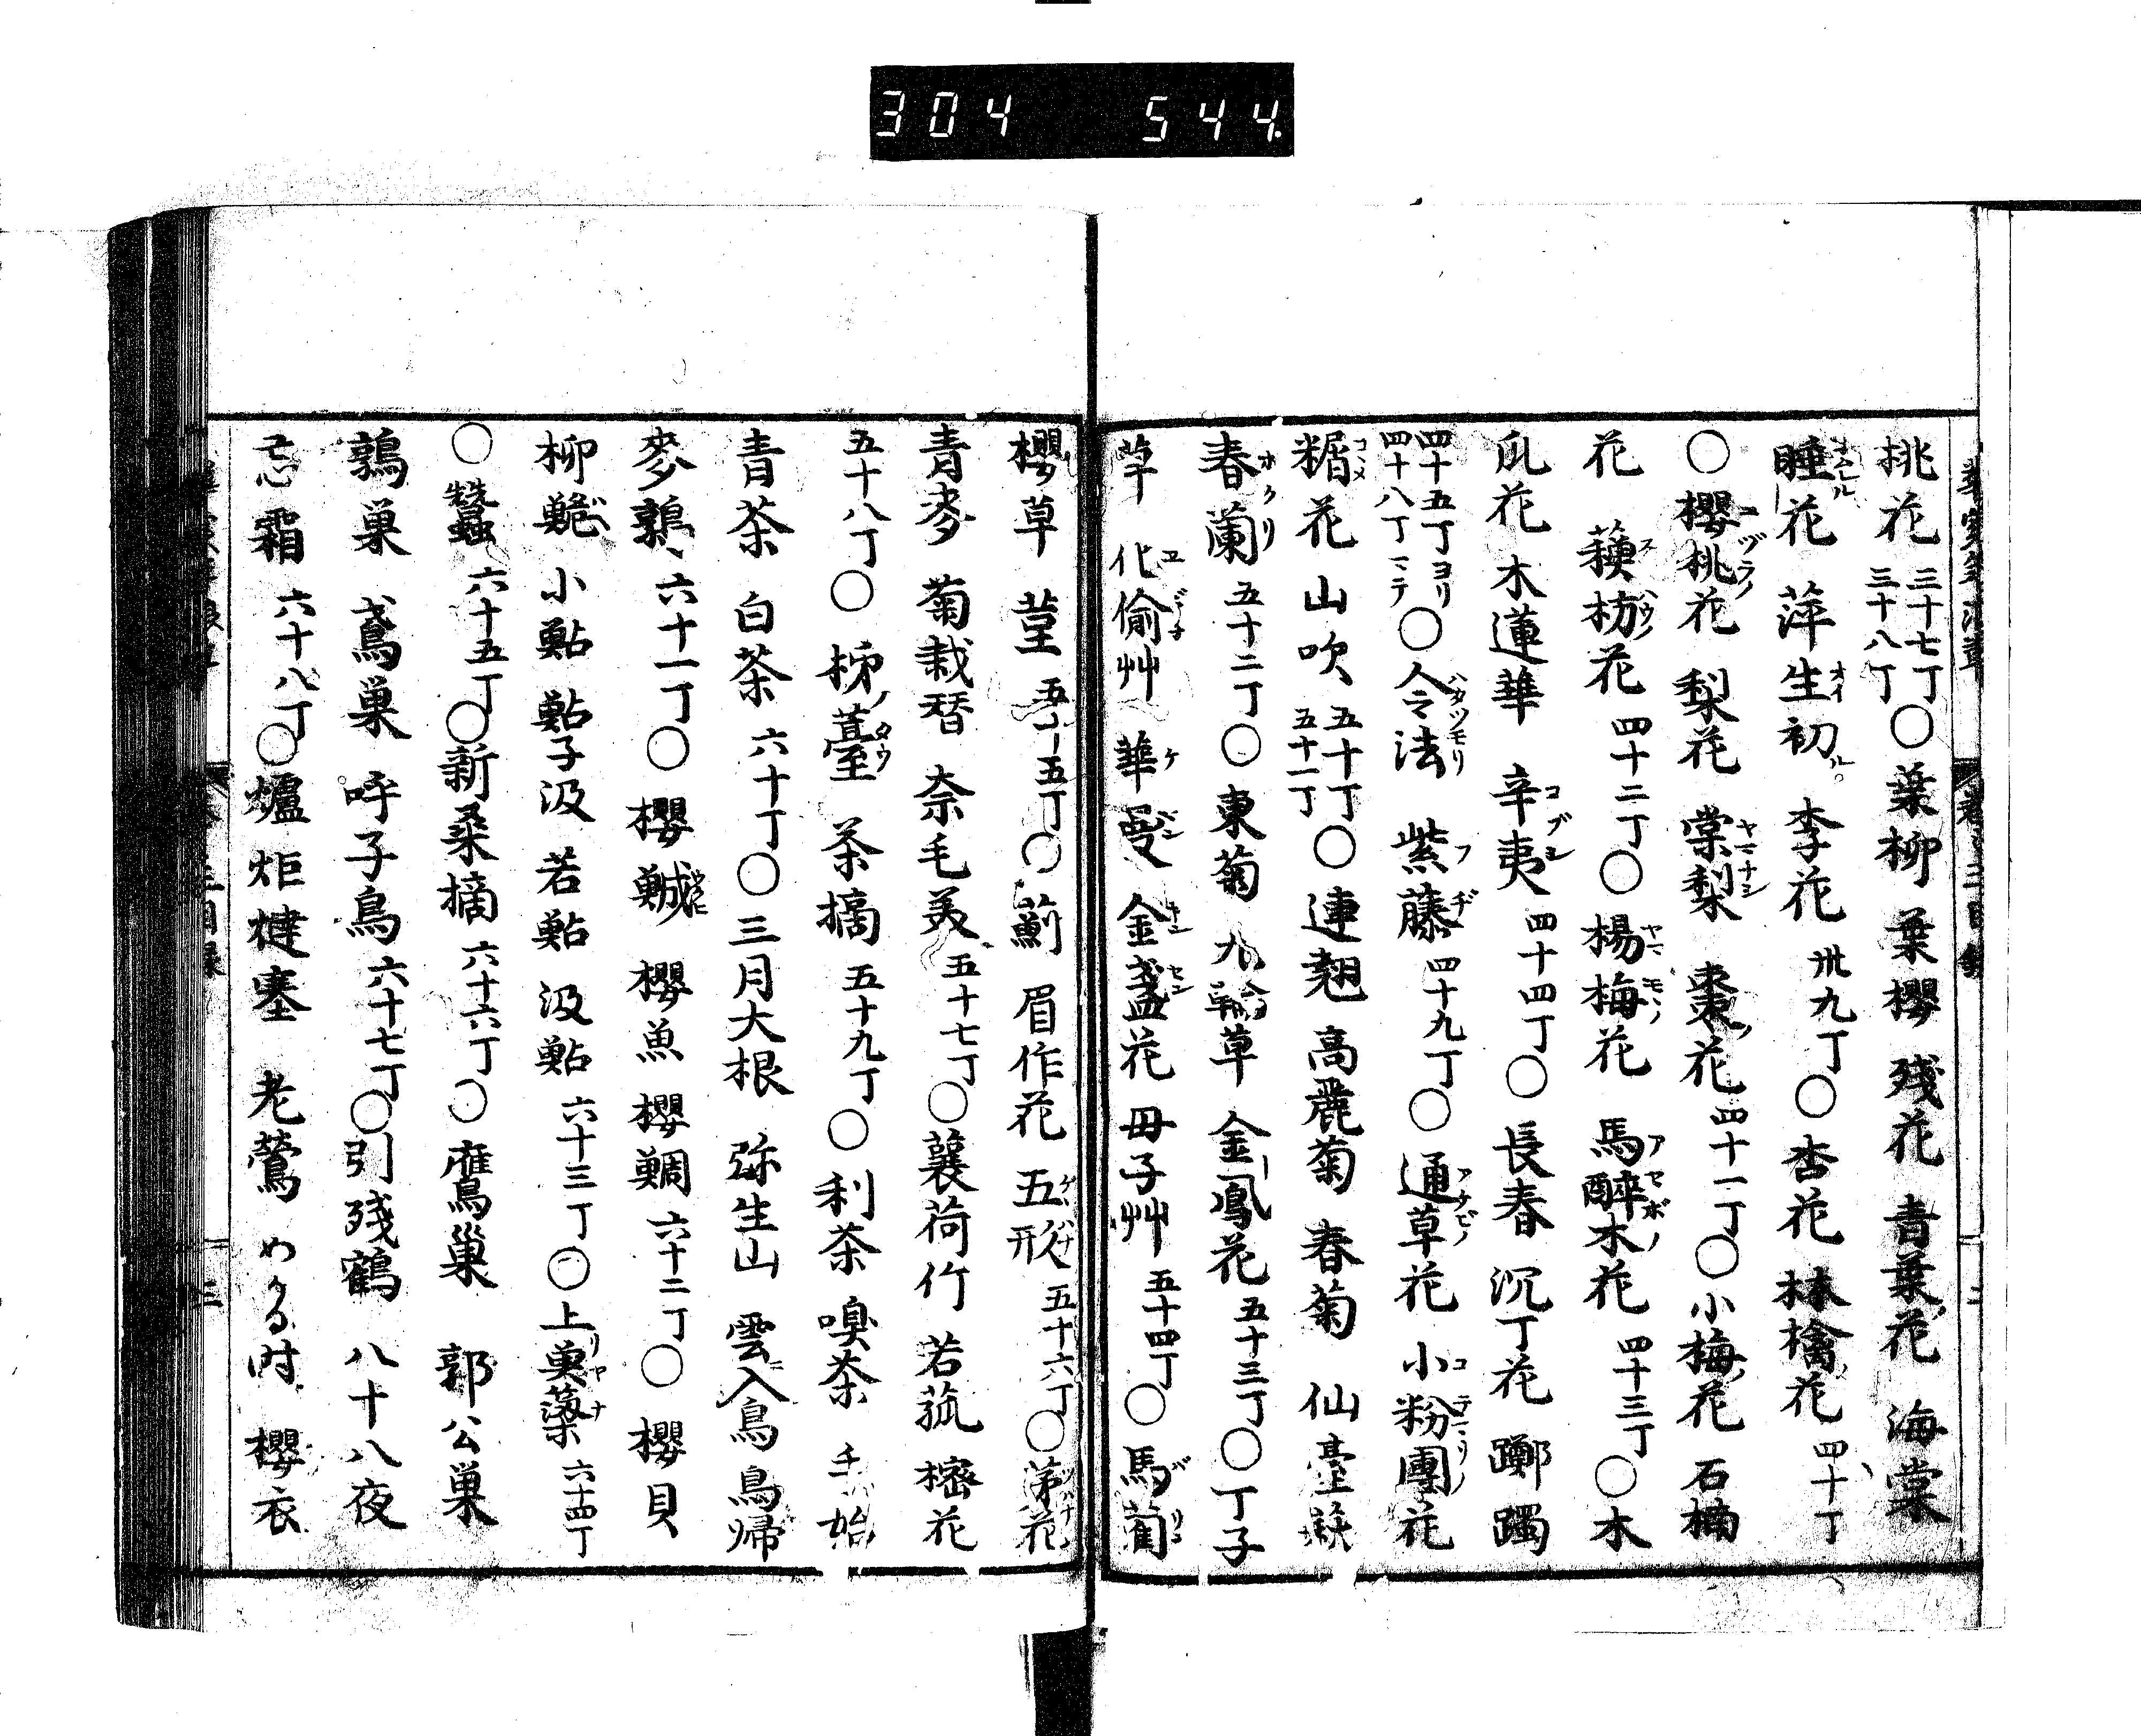 304 544
桃花 三十七丁 三十八丁 〇葉柳 葉櫻 殘花 青葉花 海棠
睡花 萍生初 李花 卅九丁〇杏花 林檎花 四十丁
〇櫻桃花 梨花 棠梨 棗花 四十一丁〇小梅花 石楠
花 蘓枋花 四十二丁〇楊梅花 馬醉木花 四十三丁〇木
瓜花 木蓮華 辛夷 四十四丁〇長春 沉丁花 躑躅
四十五丁ヨリ 四十八丁ニテ 〇令法 紫藤 四十九丁〇通草花 小粉團花
糏花 山吹 五十丁 五十一丁 〇連翹 高麗菊 春菊 仙臺
春蘭 五十二丁〇東菊 九輪草 金鳳花 五十三丁〇丁子
草 化偷艸 華鬘 金盞花 母子艸 五十四丁〇馬藺
櫻草 菫 五十五丁〇薊 眉作花 五形 五十六丁〇茅花
青麥 菊栽替 奈毛美 五十七丁〇蘘荷竹 若菰 樒花
五十八丁〇 㯃ノ薹 茶摘 五十九丁〇利茶 嗅茶 手始
青茶 白茶 六十丁〇三月大根 弥生山 雲入鳥 鳥歸
麥鶉 六十一丁〇櫻鰄 櫻魚 櫻鯛 六十二丁〇櫻貝
柳鮠 小鮎 鮎子汲 若鮎 汲鮎 六十三丁〇上簗 六十四丁
〇蠶 六十五丁〇新桑摘 六十六丁〇鷹巢 郭公巢
鶉巢 鳶巢 呼子鳥 六十七丁〇引殘鶴 八十八夜
忘霜 六十八丁〇爐 炬燵塞 老鶯 わかる時 櫻衣